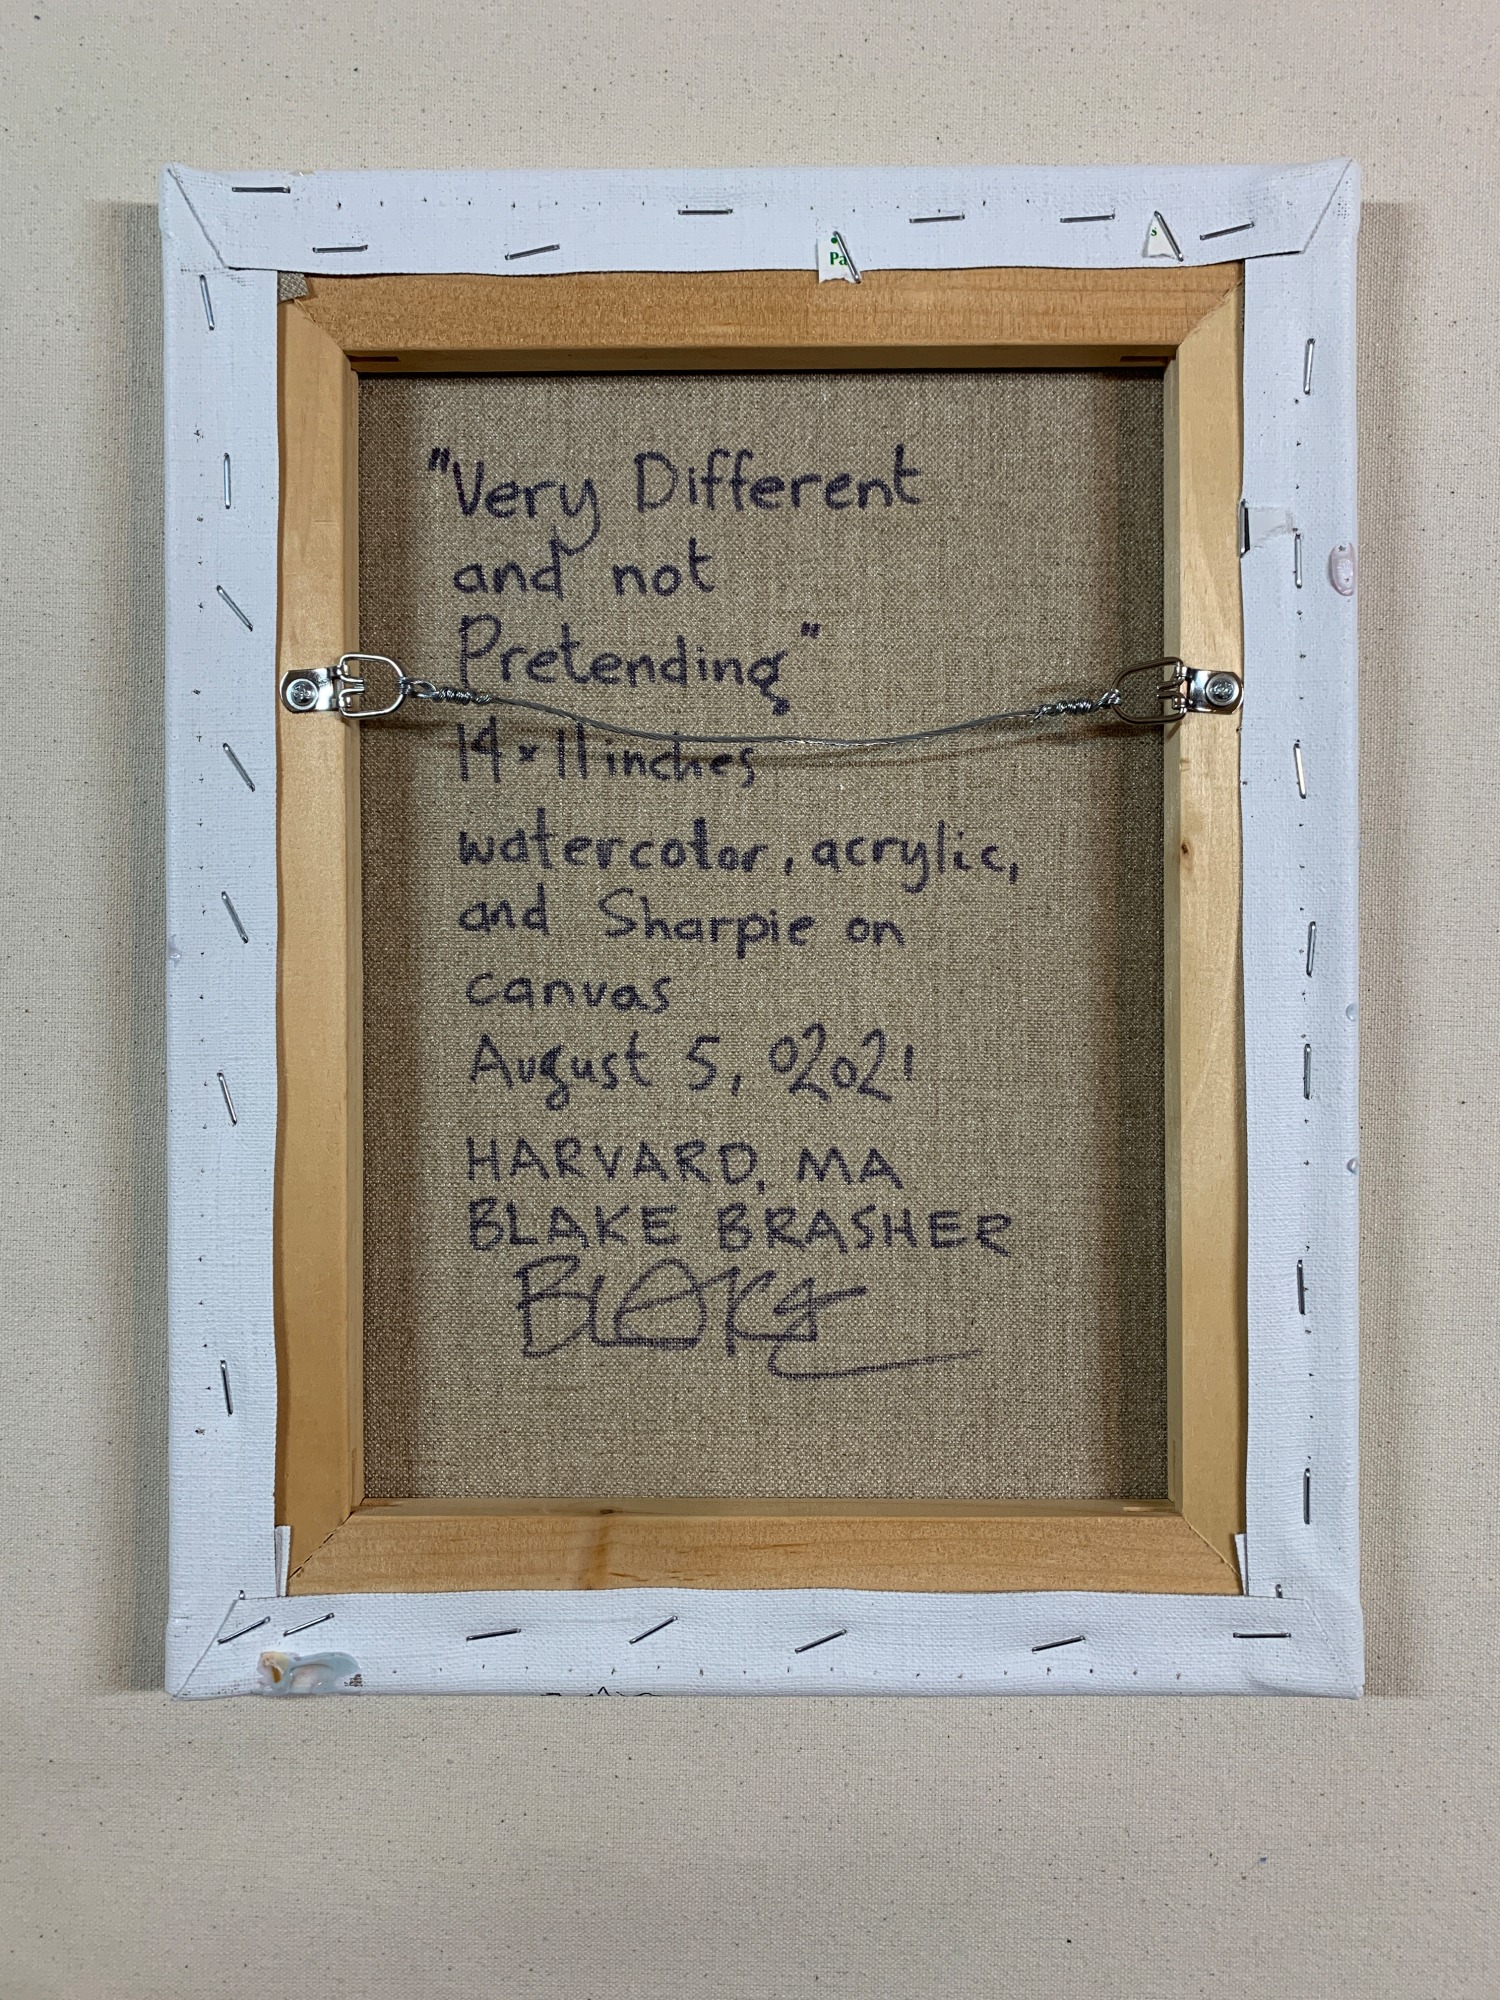 Pa
s
"Very Different
and not
Pretending"
14 x 11 inches
watercolor, acrylic,
and Sharpie on
canvas
August 5, 02021
HARVARD, MA
BLAKE BRASHER
BLAKE